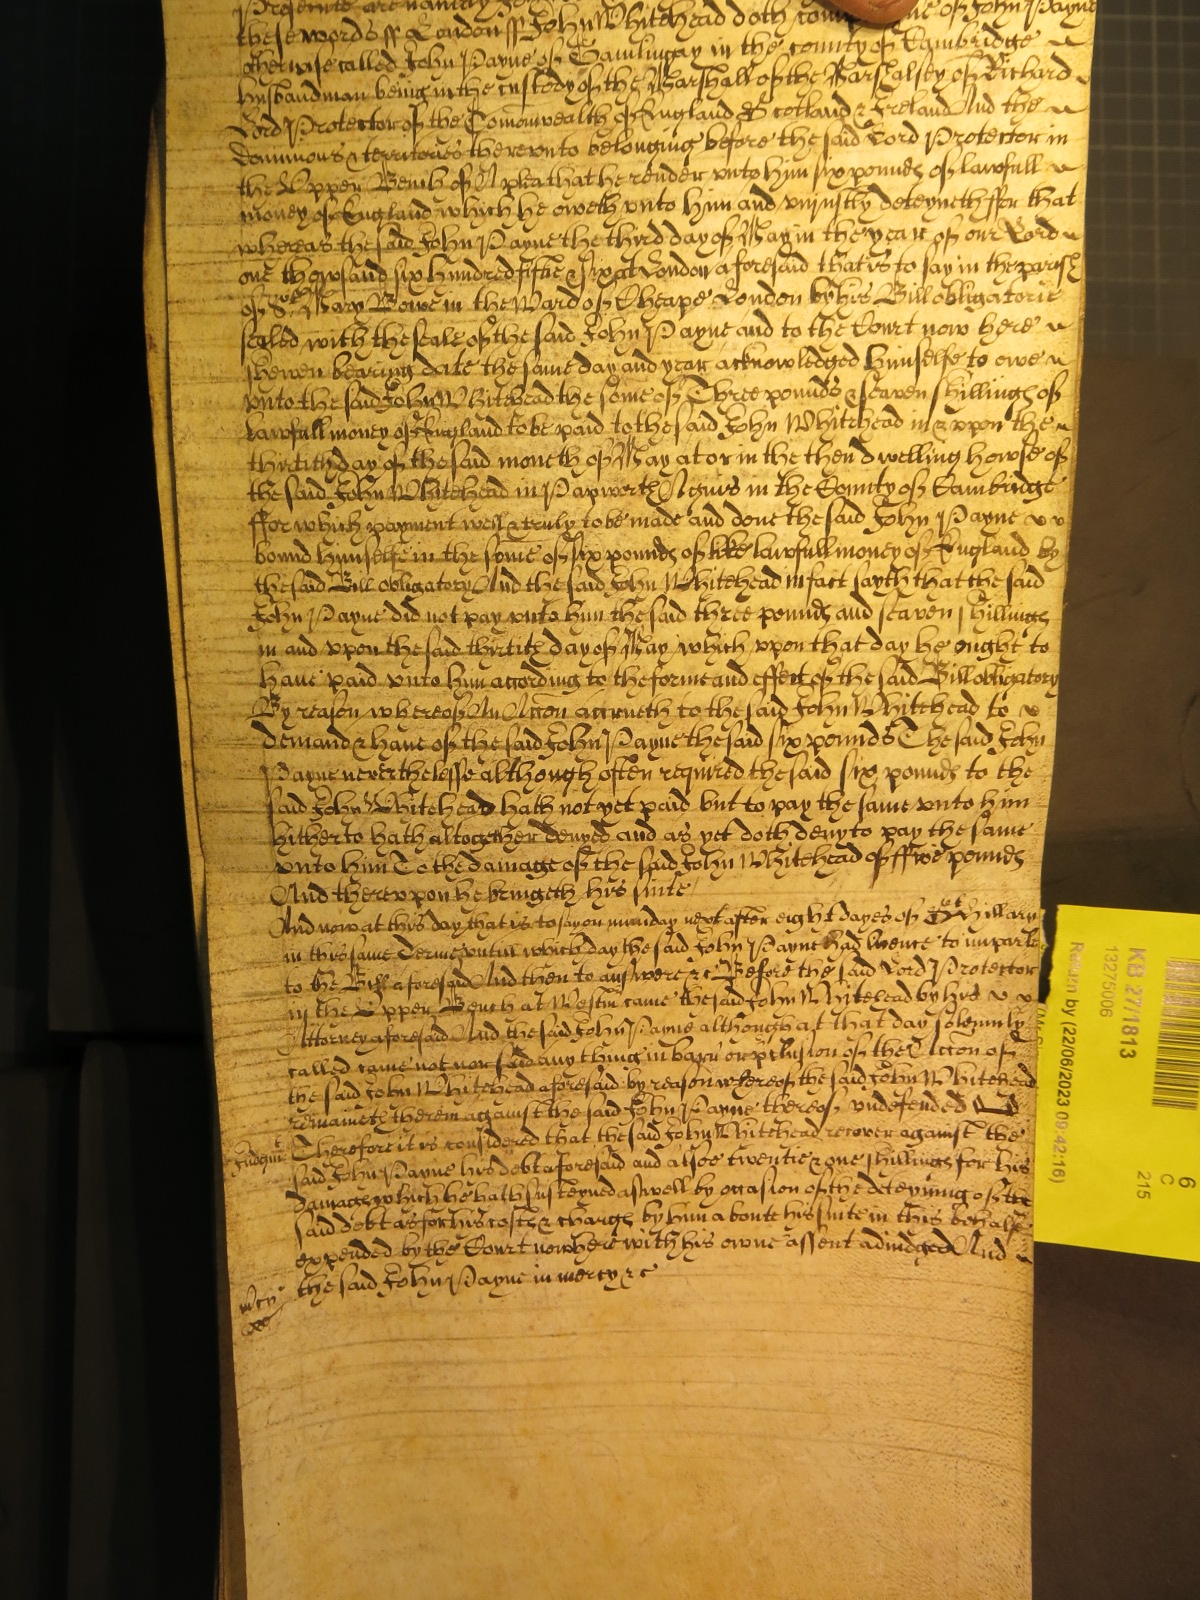 these words ss London ss John Whitehead doth of John Payne
otherwise called John Payne of Gamlingay in the county of Cambridge
husbandman being in the custody of the Marshall of the Marshalsey of Richard
Lord Protector of the Comonwealth of England Scotland & Ireland And the
dominions & territories therevnto belonging before the said Lord Protector in
the Vpper Bench of A plea that he render vnto him six pounds of lawfull
money of England which he oweth vnto him and vniustly deteyneth ffor that
whereas the said John Payne the third day of May in the year of our Lord
one thowsand six hundred fiftie & six at London aforesaid that is to say in the parish
of St Mary Bowe in the Ward of Cheape London by his Bill obligatorie
sealed with the seale of the said John Payne and to the Court now here
shewen bearing date the same day and year acknowledged himselfe to owe
vnto the said John Whitehead the some of Three pounds & seaven shillings of
lawfull money of England to be paid to the said John Whitehead in & vpon the
thirtith day of the said moneth of May at or in the then dwelling howse of
the said John Whitehead in Papworth Agnis in the County of Cambridge
ffor which payment well & truly to be made and done the said John Payne
bound himselfe in the some of six pounds of like lawfull money of England by
the said Bill obligatory And the said John Whitehead in fact sayth that the said
John Payne did not pay vnto him the said three pounds and seaven shillings
in and vpon the said thirtith day of May which vpon that day he ought to
haue paid vnto him according to the forme and effect of the said Bill obligatory
By reason whereof An Accon accrueth to the said John Whitehead to
demand & haue of the said John Payne the said six pounds The said John
Payne neverthelesse although often required the said six pounds to the
said John Whitehead hath not yet paid but to pay the same vnto him
hitherto hath altogether denyed and as yet doth deny to pay the same
vnto him To the damage of the said John Whitehead of ffive pounds
And therevpon he bringeth his suite
And now at this day that is to say on munday next after eight dayes of St Hillary
in this same Terme vntill which day the said John Payne had licence to imparle
to the Bill aforesaid And then to answere &c Before the said Lord Protector
in the Vpper Bench at Westm came the said John Whitehead by his
Attorney aforesaid And the said John Payne although at that day solemnly
called came not nor said any thing in barr or pclusion of the Accon of
the said John Whitehead aforesaid by reason whereof the said John Whitehead
remaineth therein against the said John Payne thereof vndefended
Judgmt Therefore it is considered that the said John Whitehead recover against the
said John Payne his debt aforesaid and alsoe twentie & one shillings for his
damages which he hath susteyned aswell by occasion of the deteyning of the
said debt as for his costs & charges by him aboute his suite in this behalfe
expended by the Court now here with his owne assent adiudged And
the said John Payne in mercy &c
KB 27/1813
13275006
Return by (12/06/2023 09:42:16)
6
C
215